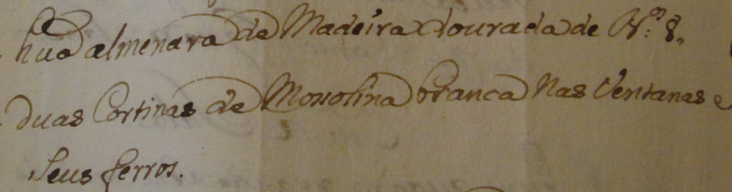 huã almenara de Madeira dourada de N.º 8„
duas Cortinas de Mosolina branca Nas Ventanas e
Seus ferros.